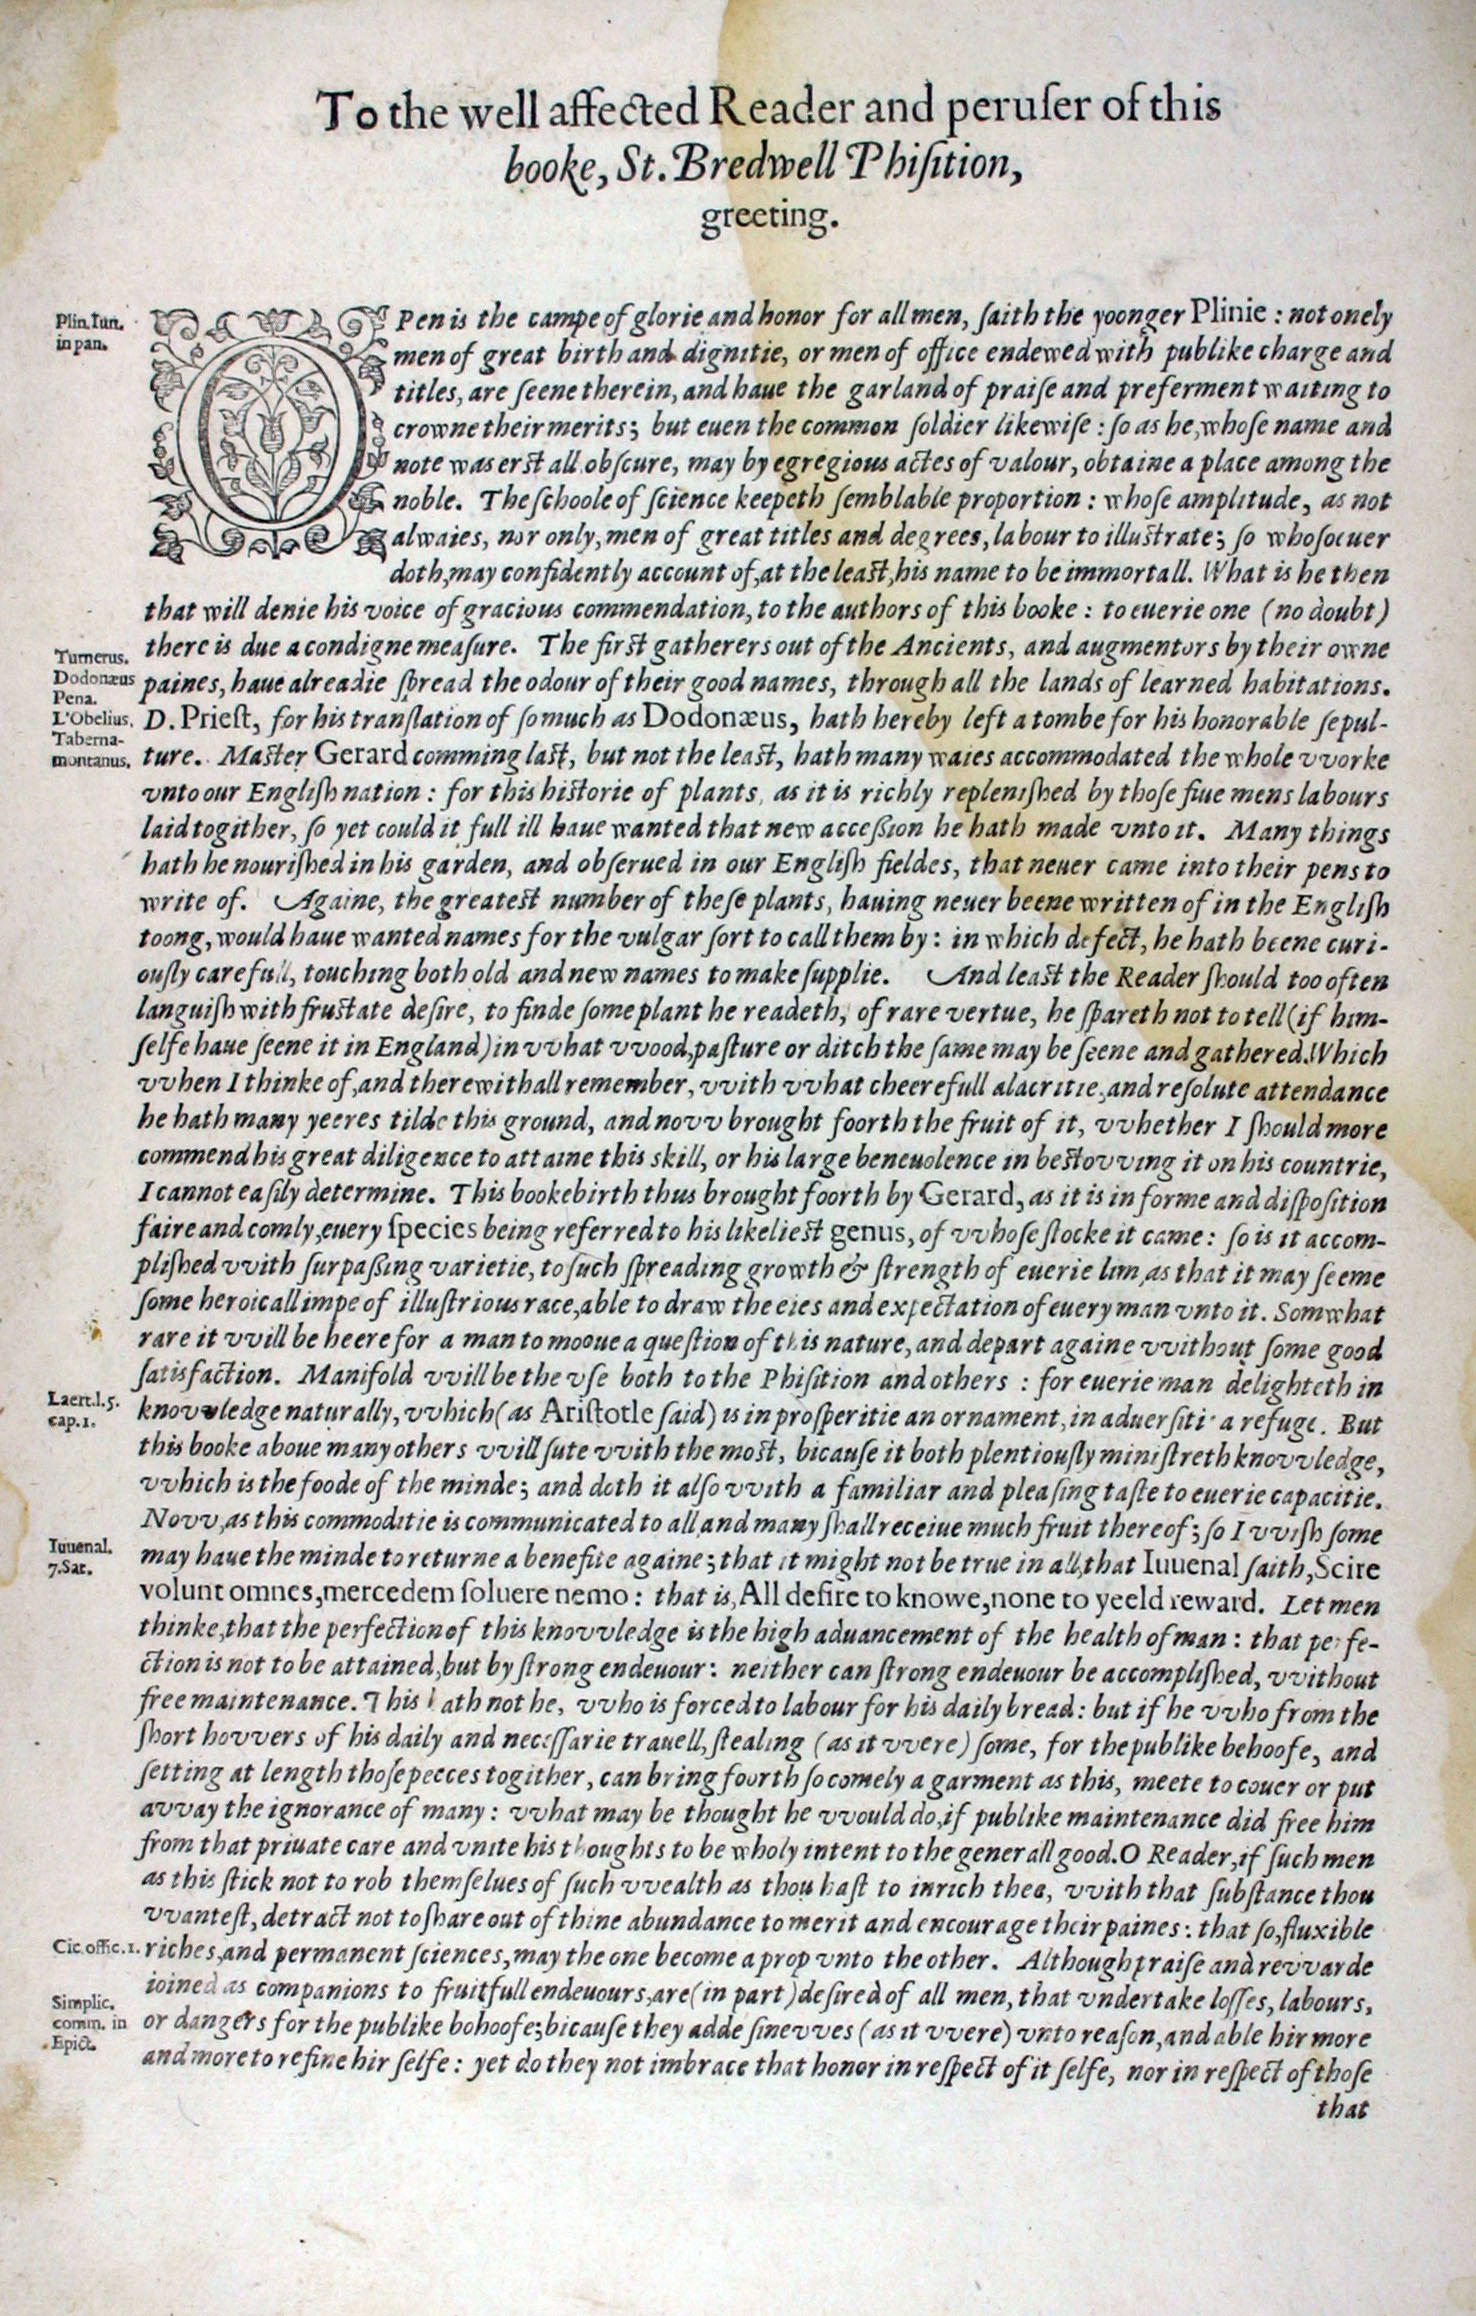 To the well affected Reader and peruſer of this
booke, St. Bredwell Phiſition,
greeting.
Plin. Iun.
in pan.
OPen is the campe of glorie and honor for all men, ſaith the yoonger Plinie : not onely
men of great birth and dignitie, or men of office endewed with publike charge and
titles, are ſeene therein, and haue the garland of praiſe and preferment waiting to
crowne their merits; but euen the common ſoldier likewiſe : ſo as he, whoſe name and
note was erſt all obſcure, may by egregious actes of valour, obtaine a place among the
noble. The ſchoole of ſcience keepeth ſemblable proportion : whoſe amplitude, as not
alwaies, nor only, men of great titles and degrees, labour to illuſtrate; ſo whoſoeuer
doth, may confidently account of, at the leaſt, his name to be immortall. What is he then
that will denie his voice of gracious commendation, to the authors of this booke : to euerie one (no doubt)
there is due a condigne meaſure. The firſt gatherers out of the Ancients, and augmentors by their owne
Turnerus.
Dodonæus
Pena.
L'Obelius.
Taberna-
montanus.
paines, haue alreadie ſpread the odour of their good names, through all the lands of learned habitations.
D. Prieſt, for his tranſlation of ſo much as Dodonæus, hath hereby left a tombe for his honorable ſepul-
ture. Maſter Gerard comming laſt, but not the leaſt, hath many waies accommodated the whole vvorke
vnto our Engliſh nation : for this hiſtorie of plants, as it is richly repleniſhed by thoſe fiue mens labours
laid togither, ſo yet could it full ill haue wanted that new acceſsion he hath made vnto it. Many things
hath he nouriſhed in his garden, and obſerued in our Engliſh fieldes, that neuer came into their pens to
write of. Againe, the greateſt number of theſe plants, hauing neuer beene written of in the Engliſh
toong, would haue wanted names for the vulgar ſort to call them by : in which defect, he hath beene curi-
ouſly carefull, touching both old and new names to make ſupplie. And leaſt the Reader ſhould too often
languiſh with fruſtate deſire, to finde ſome plant he readeth, of rare vertue, he ſpareth not to tell (if him-
ſelfe haue ſeene it in England) in vvhat vvood, paſture or ditch the ſame may be ſeene and gathered. Which
vvhen I thinke of, and therewithall remember, vvith vvhat cheerefull alacritie, and reſolute attendance
he hath many yeeres tilde this ground, and novv brought foorth the fruit of it, vvhether I ſhould more
commend his great diligence to attaine this skill, or his large beneuolence in beſtovving it on his countrie,
I cannot eaſily determine. This bookebirth thus brought foorth by Gerard, as it is in forme and diſpoſition
faire and comly, euery ſpecies being referred to his likelieſt genus, of vvhoſe ſtocke it came : ſo is it accom-
pliſhed vvith ſurpaſsing varietie, to ſuch ſpreading growth & ſtrength of euerie lim, as that it may ſeeme
ſome heroicall impe of illuſtrious race, able to draw the eies and expectation of euery man vnto it. Somwhat
rare it vvill be heere for a man to mooue a queſtion of this nature, and depart againe vvithout ſome good
ſatisfaction. Manifold vvill be the vſe both to the Phiſition and others : for euerie man delighteth in
Laert.l.5.
cap.1.
knovvledge naturally, vvhich (as Ariſtotle ſaid) is in proſperitie an ornament, in aduerſitie a refuge. But
this booke aboue many others vvill ſute vvith the moſt, bicauſe it both plentiouſly miniſtreth knovvledge,
vvhich is the foode of the minde; and doth it alſo vvith a familiar and pleaſing taſte to euerie capacitie.
Novv, as this commoditie is communicated to all, and many ſhall receiue much fruit thereof; ſo I vviſh ſome
Iuuenal.
7.Sat.
may haue the minde to returne a benefite againe; that it might not be true in all, that Iuuenal ſaith, Scire
volunt omnes, mercedem ſoluere nemo : that is, All deſire to knowe, none to yeeld reward. Let men
thinke, that the perfection of this knovvledge is the high aduancement of the health of man : that perfe-
ction is not to be attained, but by ſtrong endeuour : neither can ſtrong endeuour be accompliſhed, vvithout
free maintenance. This hath not he, vvho is forced to labour for his daily bread : but if he vvho from the
ſhort hovvers of his daily and neceſſarie trauell, ſtealing (as it vvere) ſome, for the publike behoofe, and
ſetting at length thoſe peeces togither, can bring foorth ſo comely a garment as this, meete to couer or put
avvay the ignorance of many : vvhat may be thought he vvould do, if publike maintenance did free him
from that priuate care and vnite his thoughts to be wholy intent to the generall good. O Reader, if ſuch men
as this ſtick not to rob themſelues of ſuch vvealth as thou haſt to inrich thee, vvith that ſubſtance thou
vvanteſt, detract not to ſhare out of thine abundance to merit and encourage their paines : that ſo, fluxible
Cic. offic. 1.
riches, and permanent ſciences, may the one become a prop vnto the other. Although praiſe and revvarde
ioined as companions to fruitfull endeuours, are (in part) deſired of all men, that vndertake loſſes, labours,
Simplic.
comm. in
Epict.
or dangers for the publike bohoofe; bicauſe they adde ſinevves (as it vvere) vnto reaſon, and able hir more
and more to refine hir ſelfe : yet do they not imbrace that honor in reſpect of it ſelfe, nor in reſpect of thoſe
that